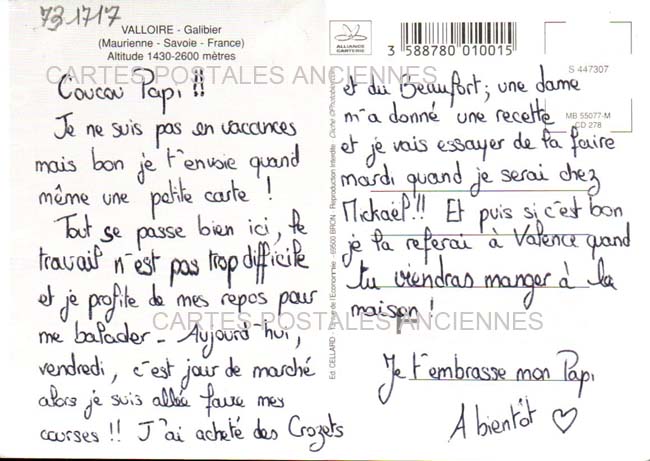 73 1717
VALLOIRE - Galibier
(Maurienne - Savoie - France)
Altitude 1430-2600 mètres
ALLIANCE
CARTERIE
3 588780 010015
S 447307
MB 55077-M
CD 278
CARTES POSTALES ANCIENNES
Coucou Papi !!
Je ne suis pas en vaccances
mais bon je t'envoie quand
même une petite carte !
Tout se passe bien ici, le
travail n'est pas trop difficile
et je profite de mes repos pour
me balader - Aujourd'hui,
vendredi, c'est jour de marché
alors je suis allée faire mes
courses !! J'ai acheté des Crozets
Ed. CELLARD - de l'Economie - 69500 BRON - Reproduction Interdite - Cliché
et du Beaufort ; une dame
m'a donné une recette
et je vais essayer de la faire
mardi quand je serai chez
Mickaël !!! Et puis si c'est bon
je la referai à Valence quand
tu viendras manger à la
maison !
CARTES POSTALES ANCIENNES
Je t'embrasse mon Papi
A bientôt ♡